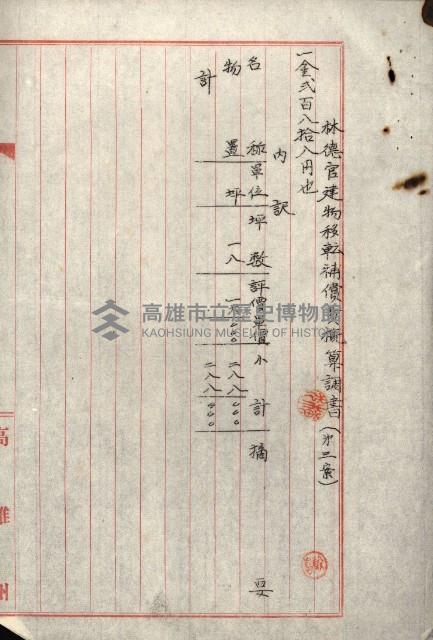 林德官建物移転補償費概算調書(第三案)
一金弐百八拾八円也
内訳
名称 單位 坪数 評價單價 小計 摘要
物置 坪 一八 二八八〇〇〇
計 二八八〇〇〇
高雄州
高雄市立歷史博物館
KAOHSIUNG MUSEUM OF HISTORY